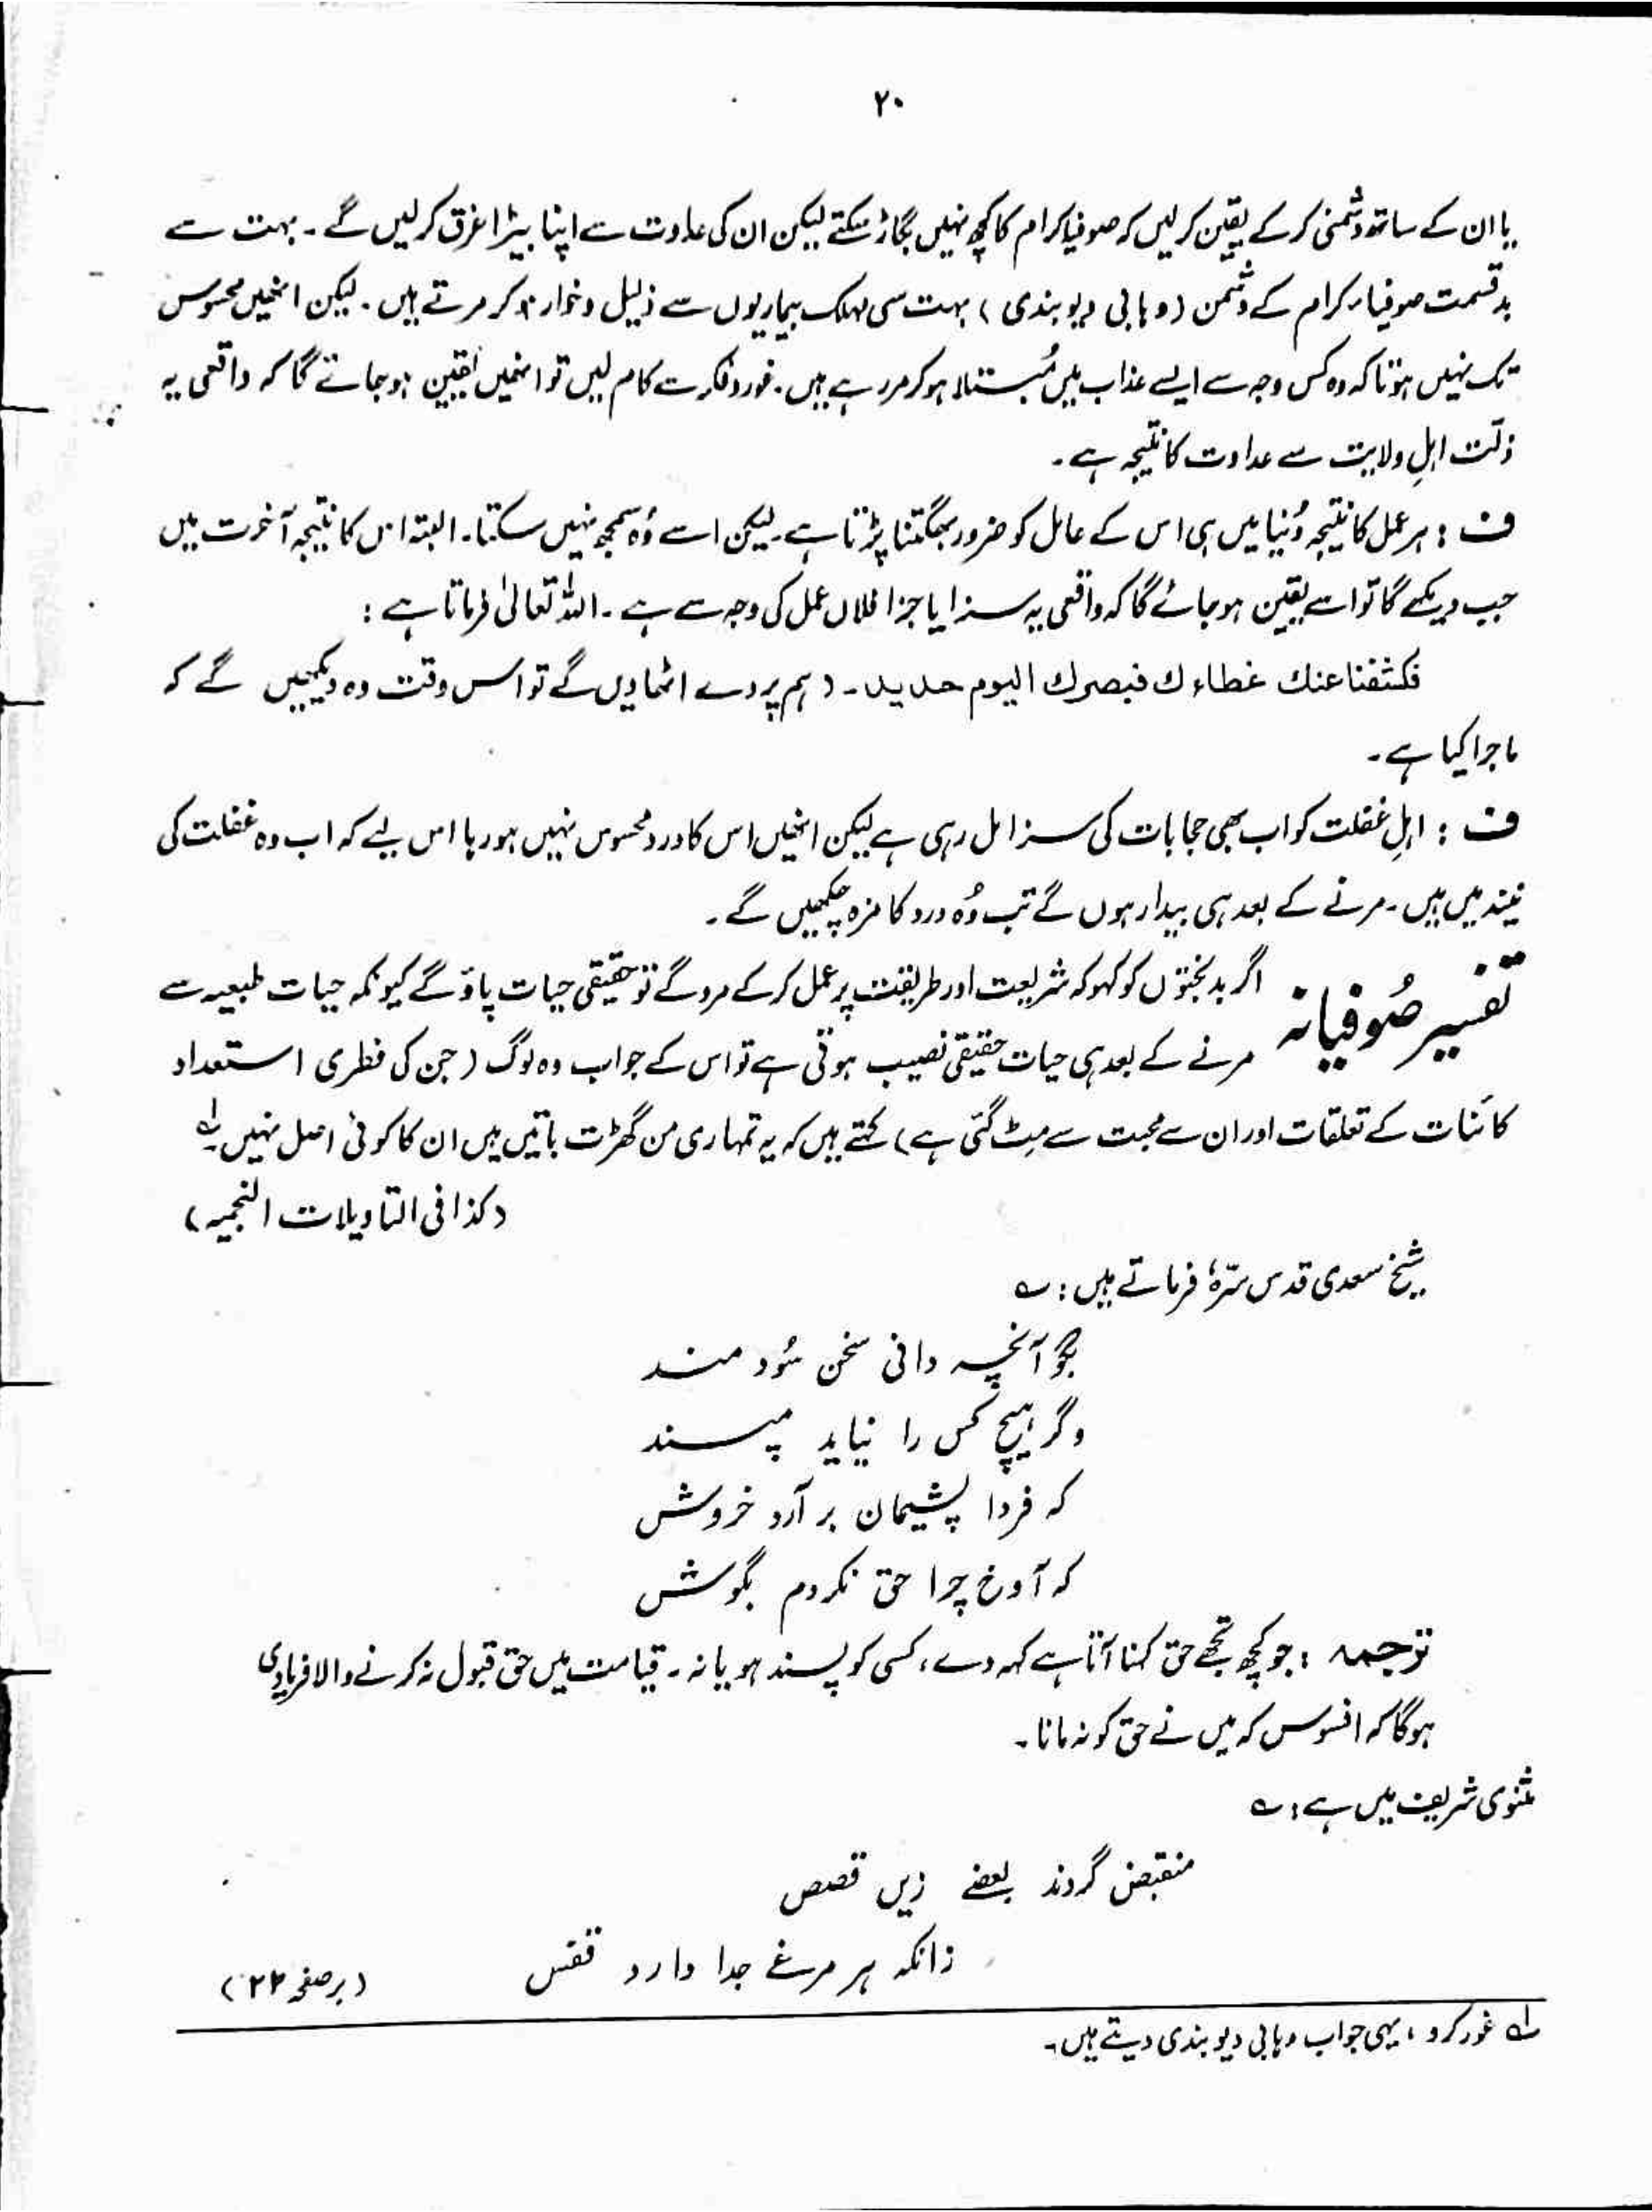 ۲۰
یا ان کے ساتھ دشمنی کر کے یقین کر لیں کہ صوفیا کرام کا کچھ نہیں بگاڑ سکتے لیکن ان کی عداوت سے اپنا بیڑا غرق کر لیں گے ۔ بہت سے
بدقسمت صوفیاء کرام کے دشمن (وہابی دیوبندی) بہت سی مہلک بیماریوں سے ذلیل و خوار ہو کر مرتے ہیں ۔ لیکن انھیں محسوس
تک نہیں ہوتا کہ وہ کس وجہ سے ایسے عذاب میں مُبتلا ہو کر مر رہے ہیں ۔ غور و فکر سے کام لیں تو انھیں یقین ہو جائے گا کہ واقعی یہ
ذلّت اہلِ ولایت سے عداوت کا نتیجہ ہے ۔
ف : ہر عمل کا نتیجہ دُنیا میں ہی اس کے عامل کو ضرور بھگتنا پڑتا ہے ۔ لیکن اسے وُہ سمجھ نہیں سکتا ۔ البتہ اس کا نتیجہ آخرت میں
جب دیکھے گا تو اسے یقین ہو جائے گا کہ واقعی یہ سزا یا جزا فلاں عمل کی وجہ سے ہے ۔ اللہ تعالیٰ فرماتا ہے :
فكشفنا عنك غطاءك فبصرك اليوم حديد ۔ (ہم پردے اٹھا دیں گے تو اس وقت وہ دیکھیں گے کہ
ماجرا کیا ہے ۔
ف : اہلِ غفلت کو اب بھی حجابات کی سزا مل رہی ہے لیکن انھیں اس کا درد محسوس نہیں ہو رہا اس لیے کہ اب وہ غفلت کی
نیند میں ہیں ۔ مرنے کے بعد ہی بیدار ہوں گے تب وُہ درد کا مزہ چکھیں گے ۔
تفسیر صُوفیانہ اگر بدبختوں کو کہو کہ شریعت اور طریقت پر عمل کر کے مرو گے تو حقیقی حیات پاؤ گے کیونکہ حیات طبعیہ سے
مرنے کے بعد ہی حیات حقیقی نصیب ہوتی ہے تو اس کے جواب وہ لوگ (جن کی فطری استعداد
کائنات کے تعلقات اور ان سے محبت سے مِٹ گئی ہے) کہتے ہیں کہ یہ تمہاری من گھڑت باتیں ہیں ان کا کوئی اصل نہیں ۔ لہ
(کذا فی التاویلات النجمیہ)
شیخ سعدی قدس سرّہٗ فرماتے ہیں : ؎
بگو آنچہ دانی سخن سُود مند
وگر ہیچ کس را نیاید پسند
کہ فردا پشیمان بر آرد خروش
کہ آوخ چرا حق نکردم بگوش
ترجمہ : جو کچھ تجھے حق کہنا آتا ہے کہہ دے ، کسی کو پسند ہو یا نہ ۔ قیامت میں حق قبول نہ کرنے والا فریادی
ہوگا کہ افسوس کہ میں نے حق کو نہ مانا ۔
مثنوی شریف میں ہے : ؎
منقبض گردند بعضے زیں قصص
زانکہ ہر مرغے جدا دارد قفس
(بر صفحہ ۲۲)
لہ غور کرو ، یہی جواب وہابی دیوبندی دیتے ہیں ۔